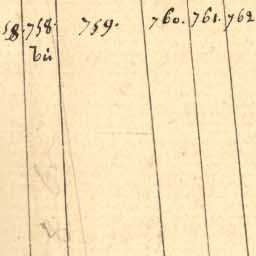 58. 758. 759. 760. 761. 762
bis